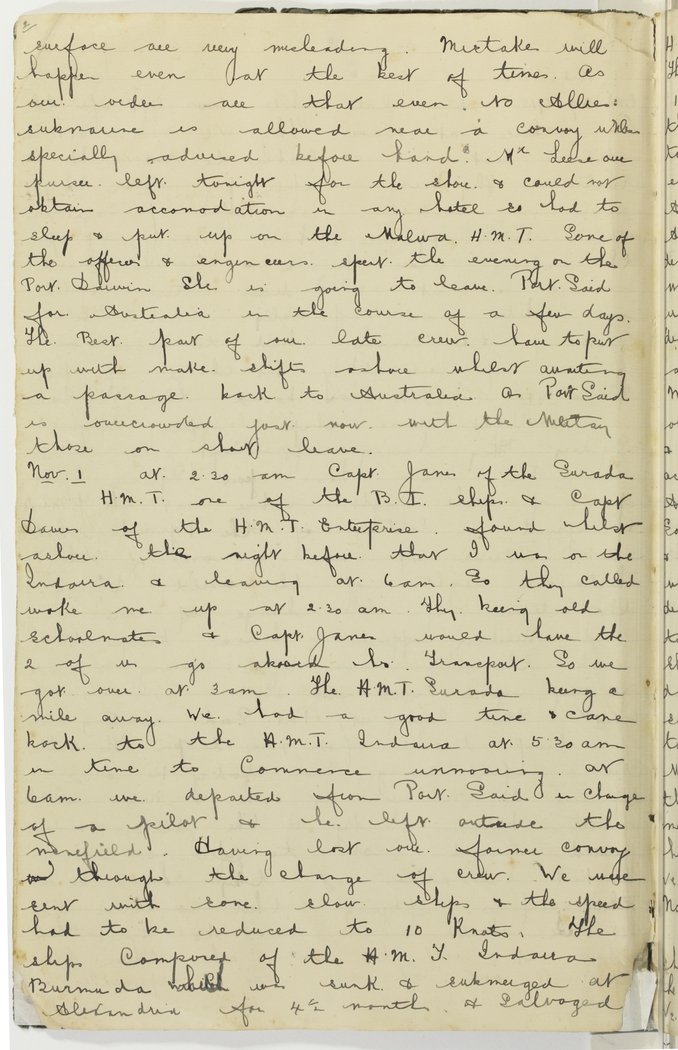 2
surface are very misleading. Mistakes will
happen even at the best of times. As
our orders are that even no Allies
submarine is allowed near a convoy unless
specially advised before hand. Mr Leese our
purser left tonight for the shore & could not
obtain accomodation in any hotel so had to
sleep & put up on the Malwa. H.M.T. Some of
the officers & engineers spent the evening on the
Port. Darwin She is going to leave. Port Said
for Australia in the course of a few days.
The Best part of our late crew. have to put
up with make. shifts ashore whilst awaiting
a passage. back to Australia as Port Said
is overcrowded just now. with the Military
those on short leave.
Nov. 1 at 2.30 am Capt. Janes of the Gurada
H.M.T. one of the B.I. ships & Capt
Davies of the H.M.T. Enterprise. found whilst
ashore. the night before that I was on the
Indarra & leaving at 6am. So they called
woke me up at 2.30 am. They being old
schoolmates & Capt. Janes would have the
2 of us go aboard his. Transport. So we
got over. at 3am. The H.M.T. Gurada being a
mile away. We had a good time & came
back. to the H.M.T. Indarra at 5.30 am
in time to Commence unmooring. at
6am. we. departed from Port. Said in charge
of a pilot & he. left outside the
minefield. Having lost our. former convoy
through the change of crew. We were
sent with some. slow ships & the speed
had to be reduced to 10 Knots. The
ships Composed of the H.M.T. Indarra
Burmuda which was sunk & submerged at
Alexandria for 4 months & Salvaged